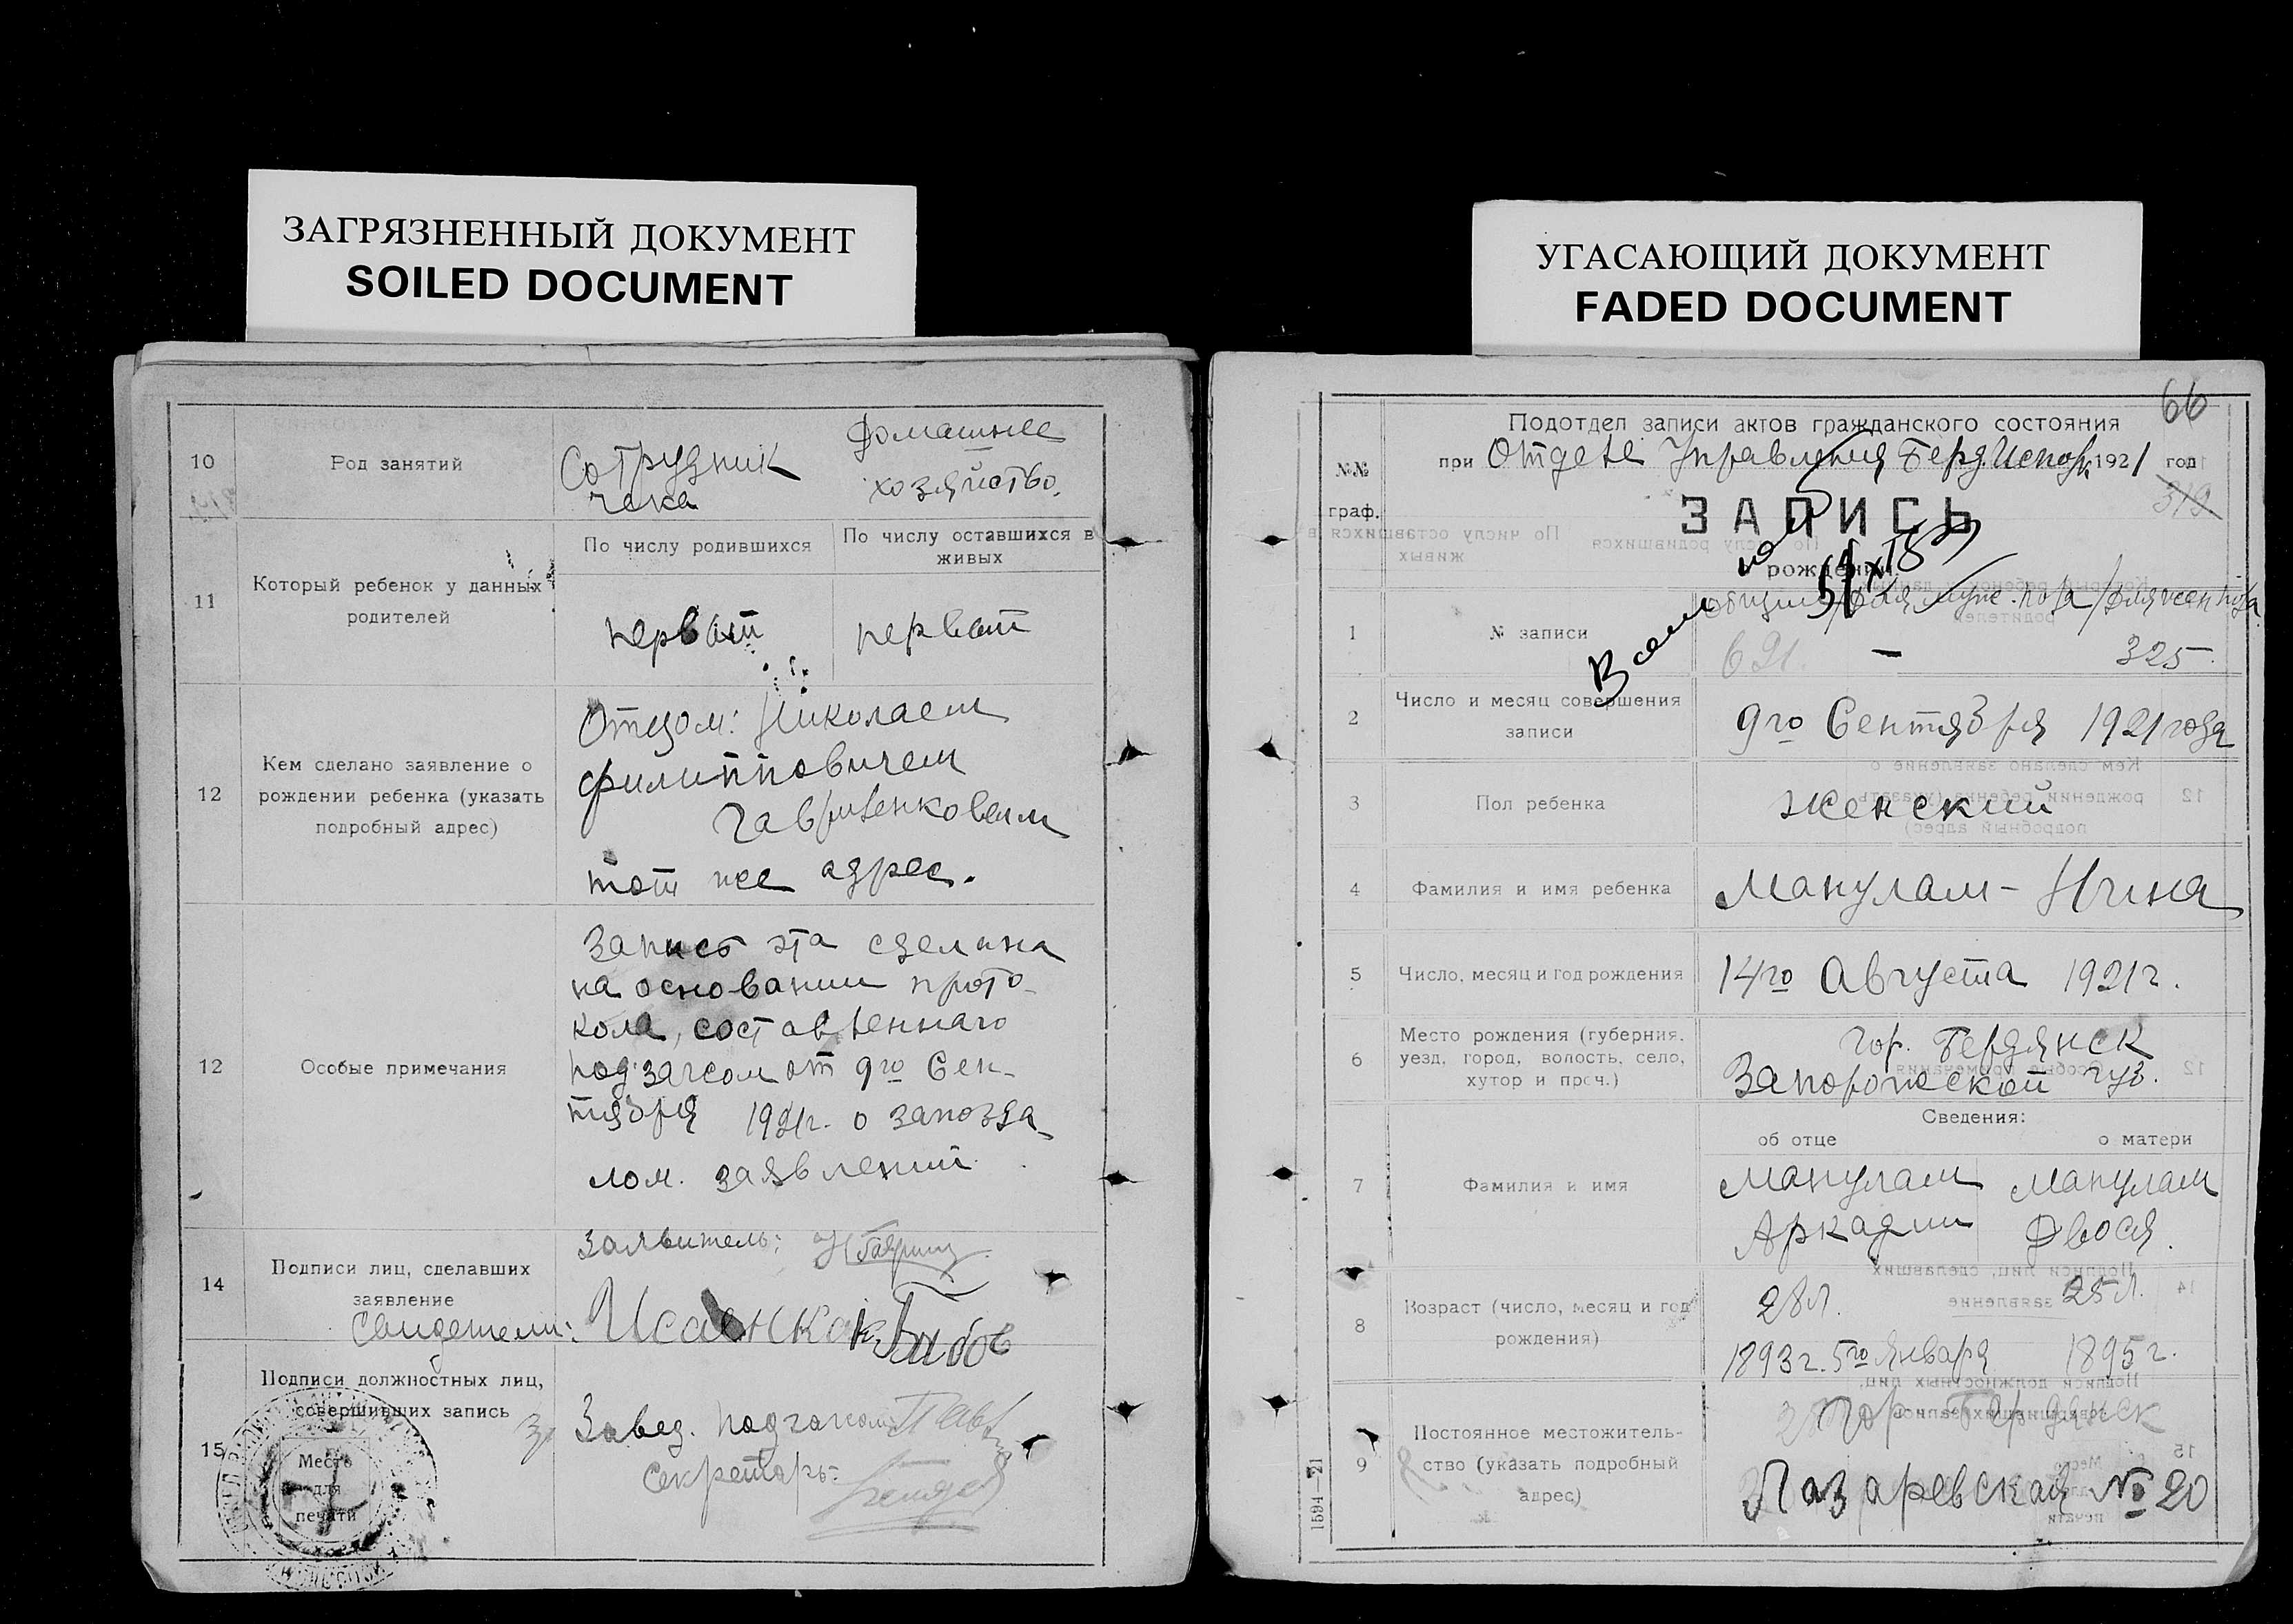 ЗАГРЯЗНЕННЫЙ ДОКУМЕНТ
SOILED DOCUMENT
10
Род занятий
Сотрудник
чека
Домашнее
хозяйство.
11
Который ребенок у данных
родителей
По числу родившихся
По числу оставшихся в
живых
первый
первый
12
Кем сделано заявление о
рождении ребенка (указать
подробный адрес)
Отцом: Николаем
Филипповичем
Гавриленковым
тот же адрес.
12
Особые примечания
Запись эта сделана
на основании прото-
кола, составленнаго
подзагсом от 9го Сен-
тября 1921г. о запозда-
лом. заявлении
14
Подписи лиц, сделавших
заявление
Свидетели:
Заявитель:
15
Подписи должностных лиц,
совершивших запись
Место
для
печати
Завед. подзагсом
Секретарь:
УГАСАЮЩИЙ ДОКУМЕНТ
FADED DOCUMENT
66
Подотдел записи актов гражданского состояния
при Отделе Управления Берд.Исполк. 1921 год
319
№№
граф.
ЗАПИСЬ
рождений.
1
№ записи
общий/для муж. пола/для жен пола
621. — 325.
2
Число и месяц совершения
записи
9го Сентября 1921 года
3
Пол ребенка
женский
4
Фамилия и имя ребенка
Манулам - Нина
5
Число, месяц и год рождения
14го Августа 1921г.
6
Место рождения (губерния,
уезд, город, волость, село,
хутор и проч.)
гор. Бердянск
Запорожской губ.
Сведения:
об отце
о матери
7
Фамилия и имя
Манулам
Аркадий
Манулам
Двося.
8
Возраст (число, месяц и год
рождения)
28л.
1893г. 5го Января
25л.
1895г.
9
Постоянное местожитель-
ство (указать подробный
адрес)
гор. Бердянск
Лазаревская № 20
1594—21